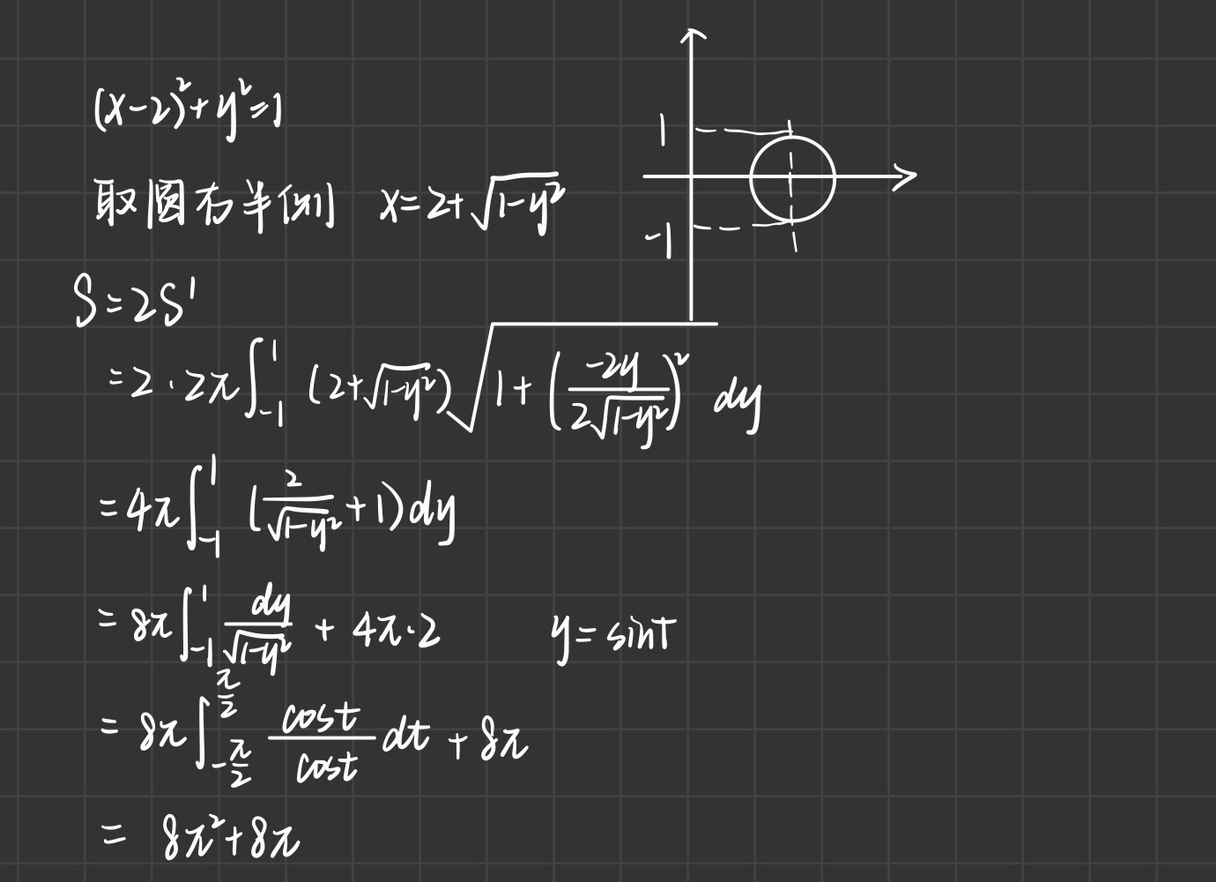 (x-2)²+y²=1
取圆右半侧 x=2+√(1-y²)
1
-1
S=2S'
=2·2π∫₋₁¹ (2+√(1-y²))√(1+(-2y/(2√(1-y²)))²) dy
=4π∫₋₁¹ (2/√(1-y²)+1)dy
=8π∫₋₁¹ dy/√(1-y²) + 4π·2 y=sint
=8π∫_{-π/2}^{π/2} cost/cost dt + 8π
= 8π²+8π